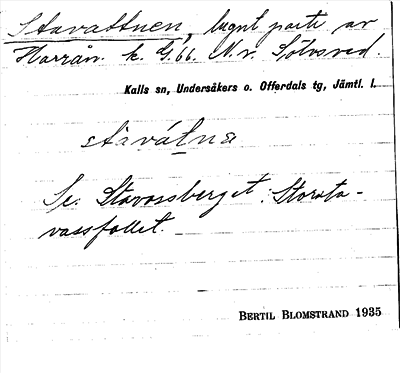 Stavattnen, lugnt parti av
Harrån. k. G.66. N.v. Sölvsved.
Kalls sn, Undersåkers o. Offerdals tg, Jämtl. l.
stavátna
Se. Stavassberget: Storsta-
vassfallet.
BERTIL BLOMSTRAND 1935